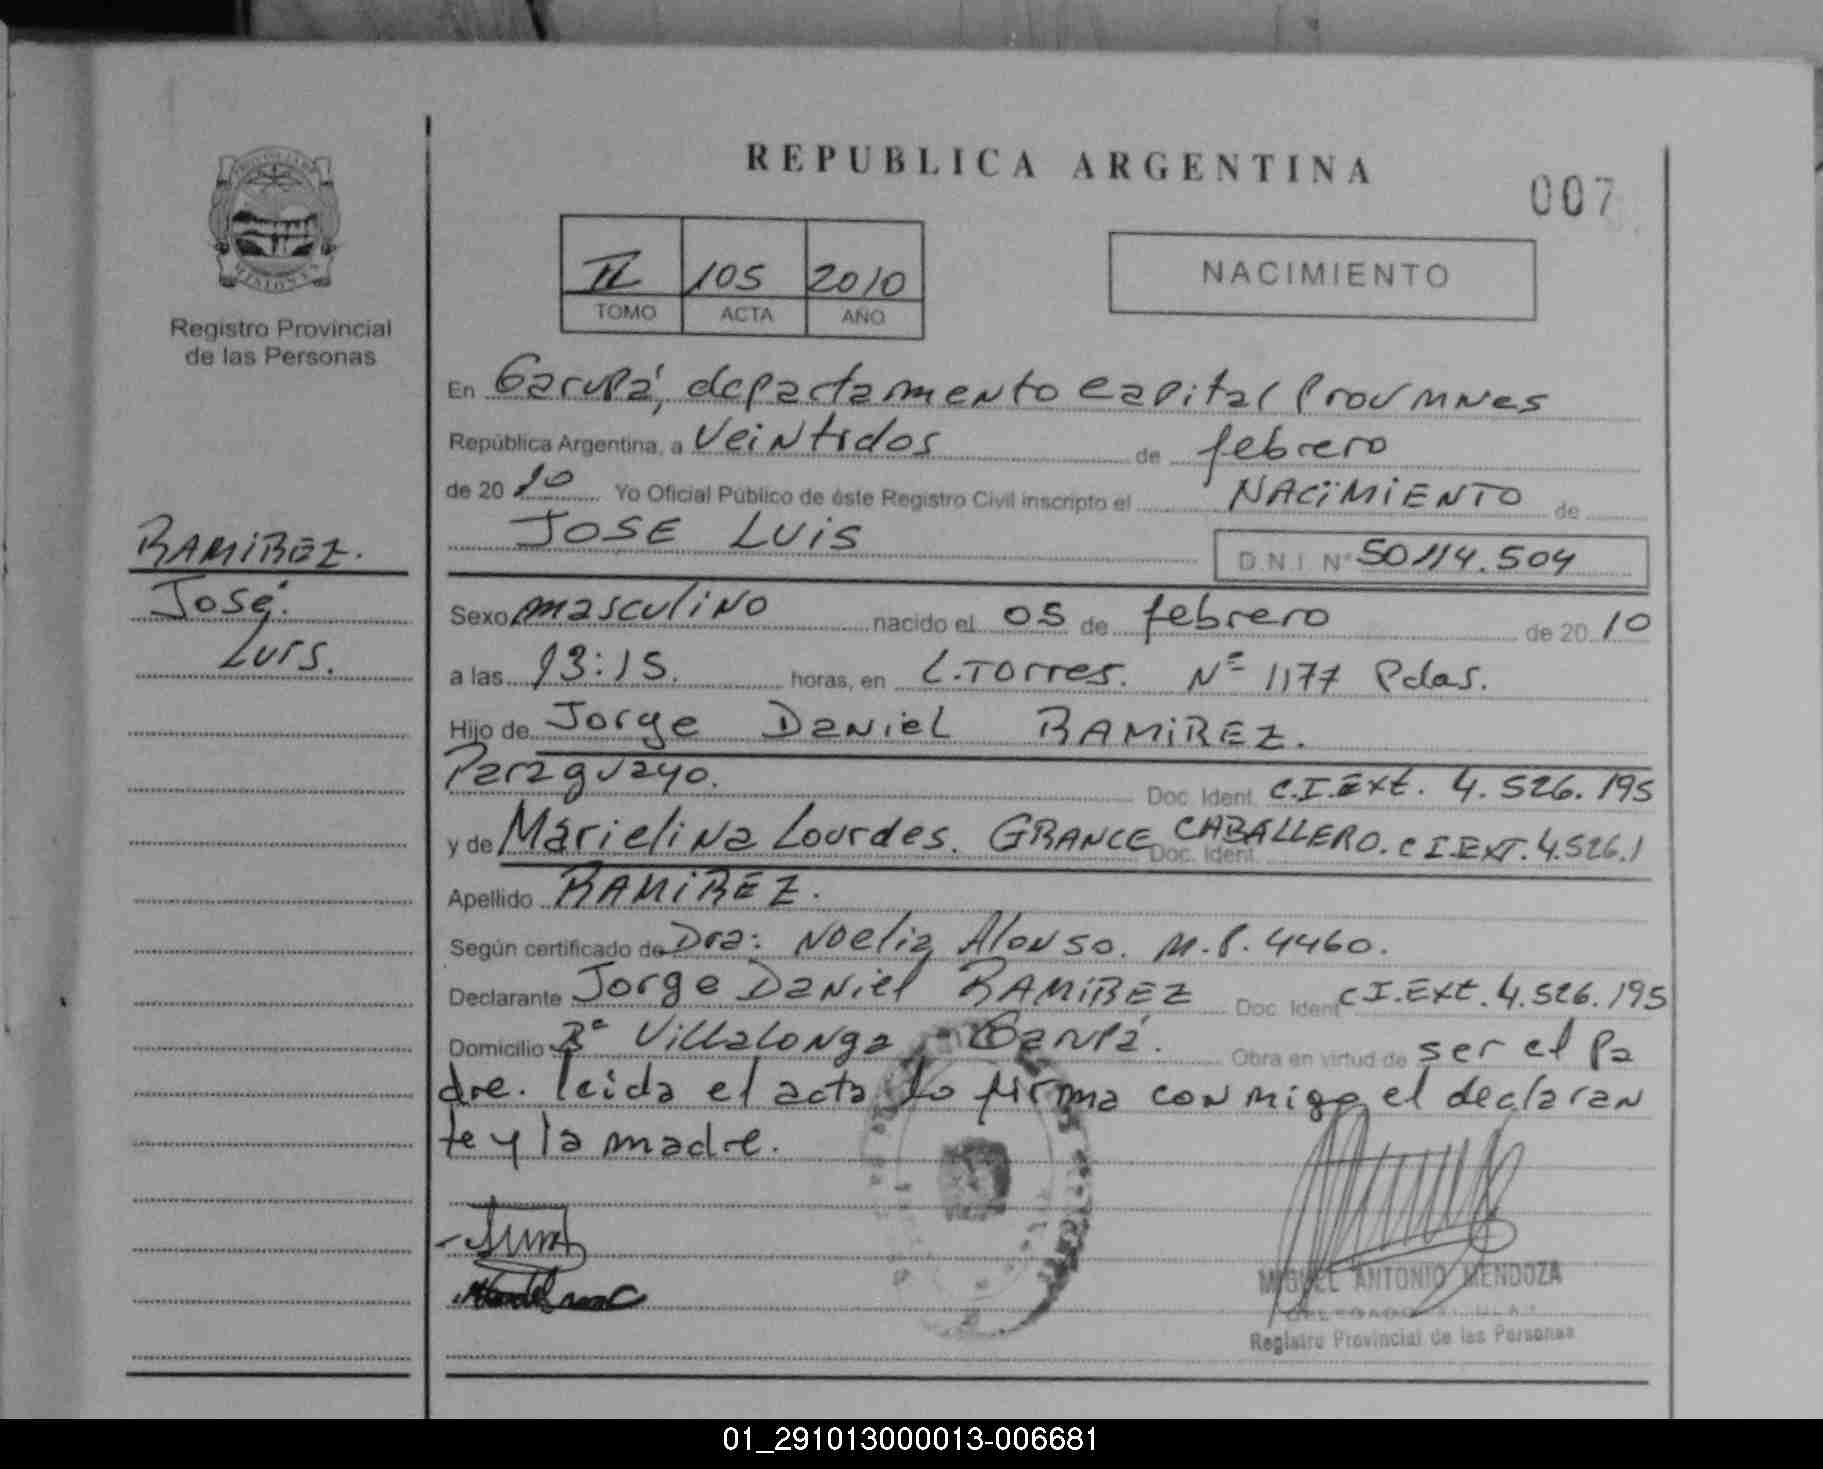 REPUBLICA ARGENTINA
007
II 105 2010
TOMO ACTA AÑO
NACIMIENTO
MISIONES
Registro Provincial
de las Personas
RAMIREZ.
José.
Luis.
En Garupá, departamento Capital Prov Mnes
República Argentina, a veintidos de febrero
de 20 10 Yo Oficial Público de éste Registro Civil inscripto el NACIMIENTO de
JOSE LUIS D.N.I. N° 50114.504
Sexo masculino nacido el 05 de febrero de 20 10
a las 13:15. horas, en L. Torres. N° 1177 Pdas.
Hijo de Jorge Daniel RAMIREZ.
Paraguayo. Doc. Ident. C.I. Ext. 4.526.195
y de Marielina Lourdes. GRANCE CABALLERO. C I.EXT. 4.526.1
Doc. Ident.
Apellido RAMIREZ.
Según certificado de Dra: Noelia Alonso. M.P. 4460.
Declarante Jorge Daniel RAMIREZ Doc. Ident C I. Ext. 4.526.195
Domicilio B° Villalonga - Garupá. Obra en virtud de ser el pa
dre. leida el acta lo firma conmigo el declaran
te y la madre.
MIGUEL ANTONIO MENDOZA
Registro Provincial de las Personas
01_291013000013-006681